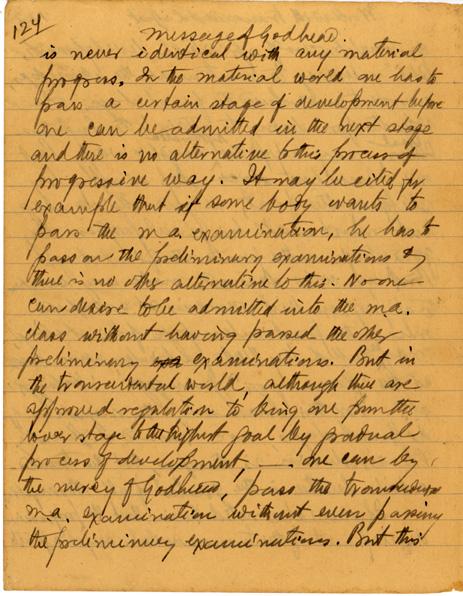 124
Message of Godhead.
is never identical with any material
progress. In the material world one has to
pass a certain stage of development before
one can be admitted in the next stage
and there is no alternative to this process of
progressive way. It may be cited for
example that if some body wants to
pass the m.a. examination, he has to
pass on the preliminary examinations &
there is no other alternative to this. No one
can desire to be admitted into the m.a.
class without having passed the other
preliminary examinations. But in
the transcendental world, although there are
approved regulation to bring one from the
lower stage to the highest goal by gradual
process of development, —. one can by
the mercy of Godhead, pass the transcendental
m.a. examination without even passing
the preliminary examinations. But this